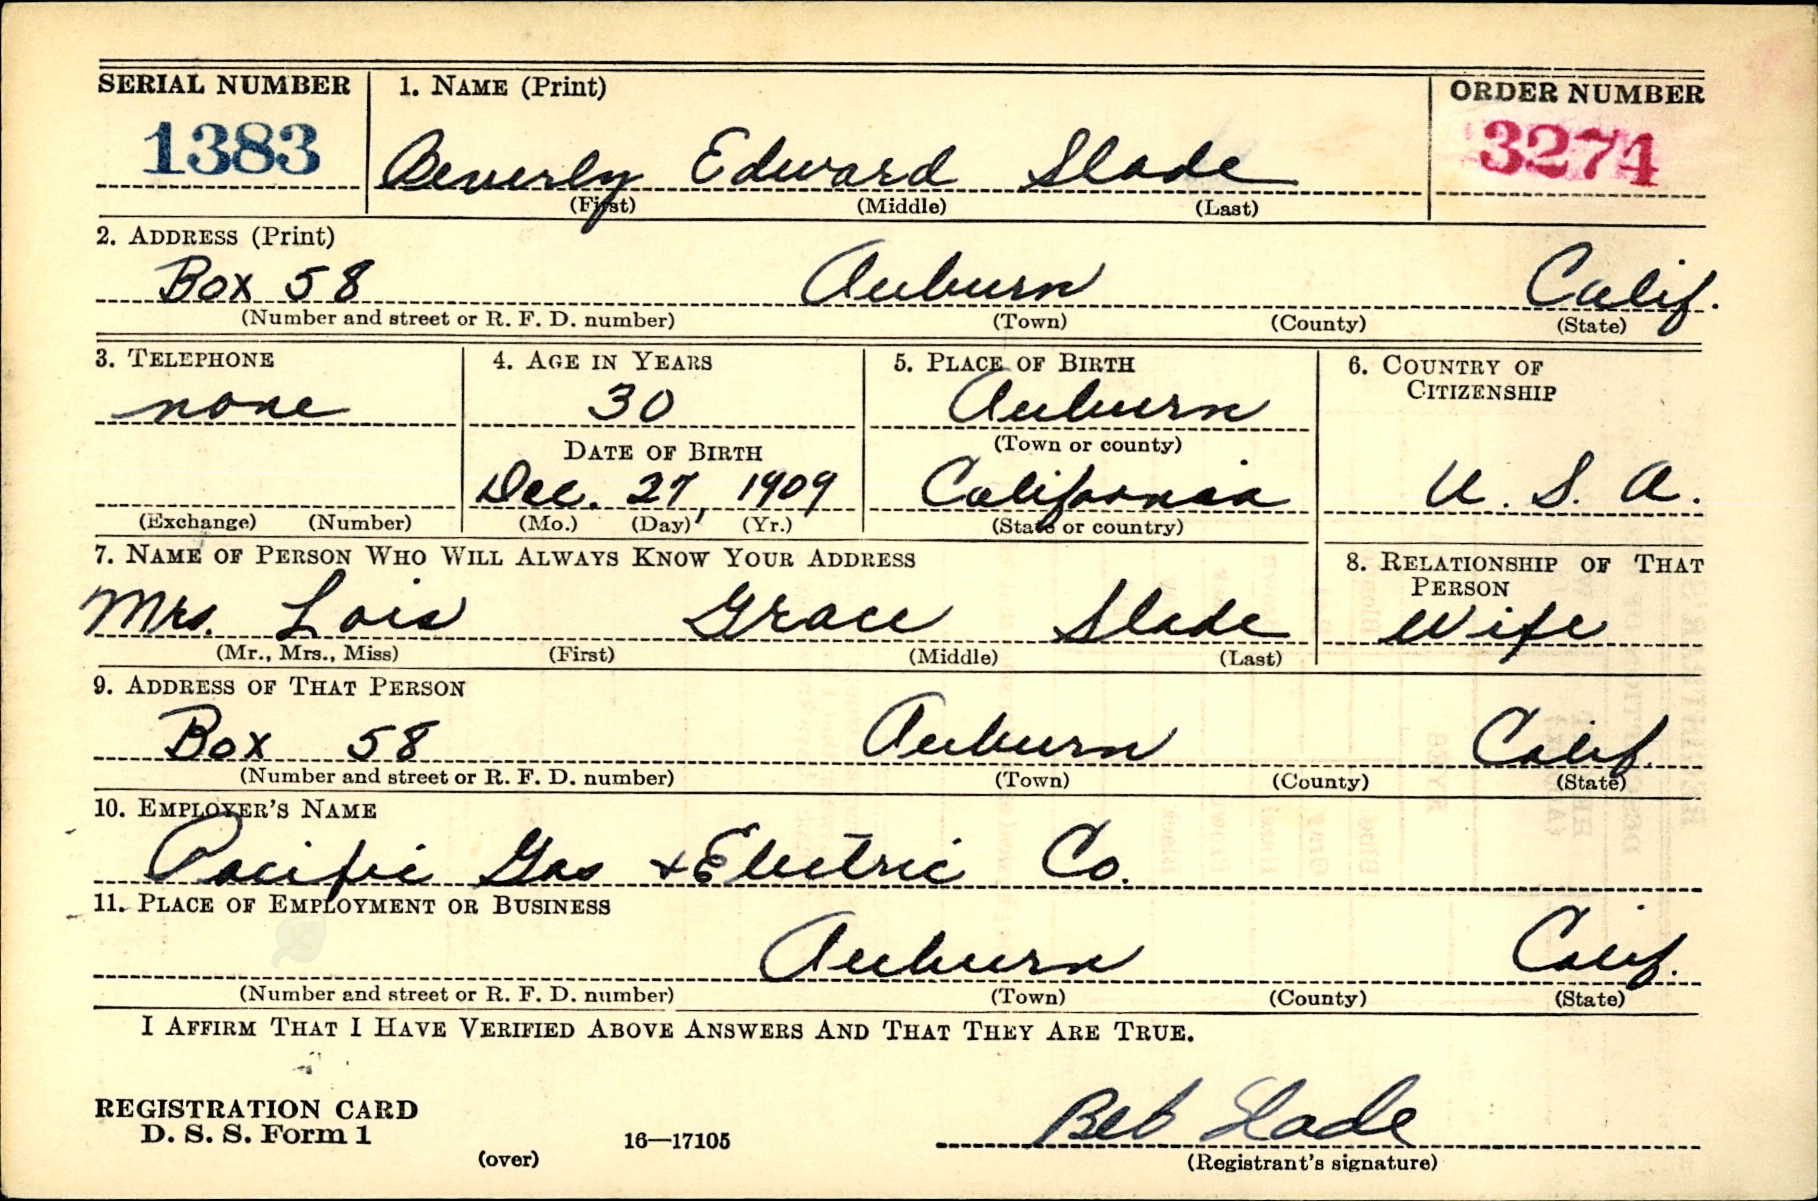 SERIAL NUMBER 1. NAME (Print) ORDER NUMBER
1383 Beverly Edward Slade 3274
(First) (Middle) (Last)
2. ADDRESS (Print)
Box 58 Auburn Calif.
(Number and street or R. F. D. number) (Town) (County) (State)
3. TELEPHONE 4. AGE IN YEARS 5. PLACE OF BIRTH 6. COUNTRY OF CITIZENSHIP
none 30 Auburn
DATE OF BIRTH (Town or county)
Dec. 27, 1909 California U. S. A.
(Exchange) (Number) (Mo.) (Day) (Yr.) (State or country)
7. NAME OF PERSON WHO WILL ALWAYS KNOW YOUR ADDRESS 8. RELATIONSHIP OF THAT PERSON
Mrs. Lois Grace Slade Wife
(Mr., Mrs., Miss) (First) (Middle) (Last)
9. ADDRESS OF THAT PERSON
Box 58 Auburn Calif.
(Number and street or R. F. D. number) (Town) (County) (State)
10. EMPLOYER'S NAME
Pacific Gas + Electric Co.
11. PLACE OF EMPLOYMENT OR BUSINESS
Auburn Calif.
(Number and street or R. F. D. number) (Town) (County) (State)
I AFFIRM THAT I HAVE VERIFIED ABOVE ANSWERS AND THAT THEY ARE TRUE.
REGISTRATION CARD Beb Slade
D. S. S. Form 1 16—17105
(over) (Registrant's signature)